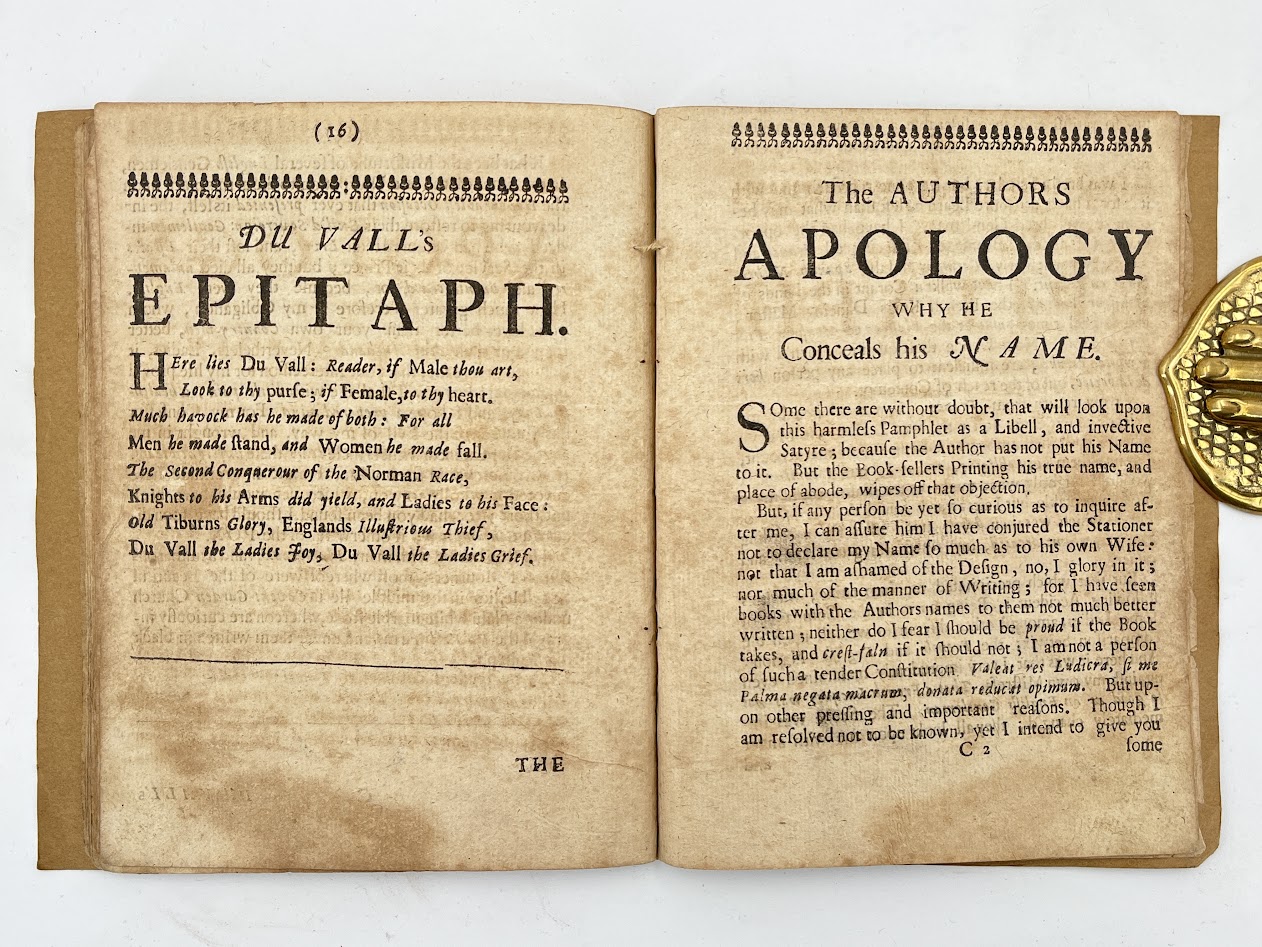 (16)
DU VALL's
EPITAPH.
HEre lies Du Vall: Reader, if Male thou art,
Look to thy purſe; if Female, to thy heart.
Much havock has he made of both: For all
Men he made ſtand, and Women he made fall.
The Second Conquerour of the Norman Race,
Knights to his Arms did yield, and Ladies to his Face:
Old Tiburns Glory, Englands Illuſtrious Thief,
Du Vall the Ladies Joy, Du Vall the Ladies Grief.
THE
The AUTHORS
APOLOGY
WHY HE
Conceals his NAME.
SOme there are without doubt, that will look upon
this harmleſs Pamphlet as a Libell, and invective
Satyre; becauſe the Author has not put his Name
to it. But the Book-ſellers Printing his true name, and
place of abode, wipes off that objection.
But, if any perſon be yet ſo curious as to inquire af-
ter me, I can aſſure him I have conjured the Stationer
not to declare my Name ſo much as to his own Wife:
not that I am aſhamed of the Deſign, no, I glory in it;
nor much of the manner of Writing; for I have ſeen
books with the Authors names to them not much better
written; neither do I fear I ſhould be proud if the Book
takes, and creſt-faln if it ſhould not; I am not a perſon
of ſuch a tender Conſtitution Valeat res Ludicra, ſi me
Palma negata macrum, donata reducat opimum. But up-
on other preſſing and important reaſons. Though I
am reſolved not to be known, yet I intend to give you
C 2
ſome